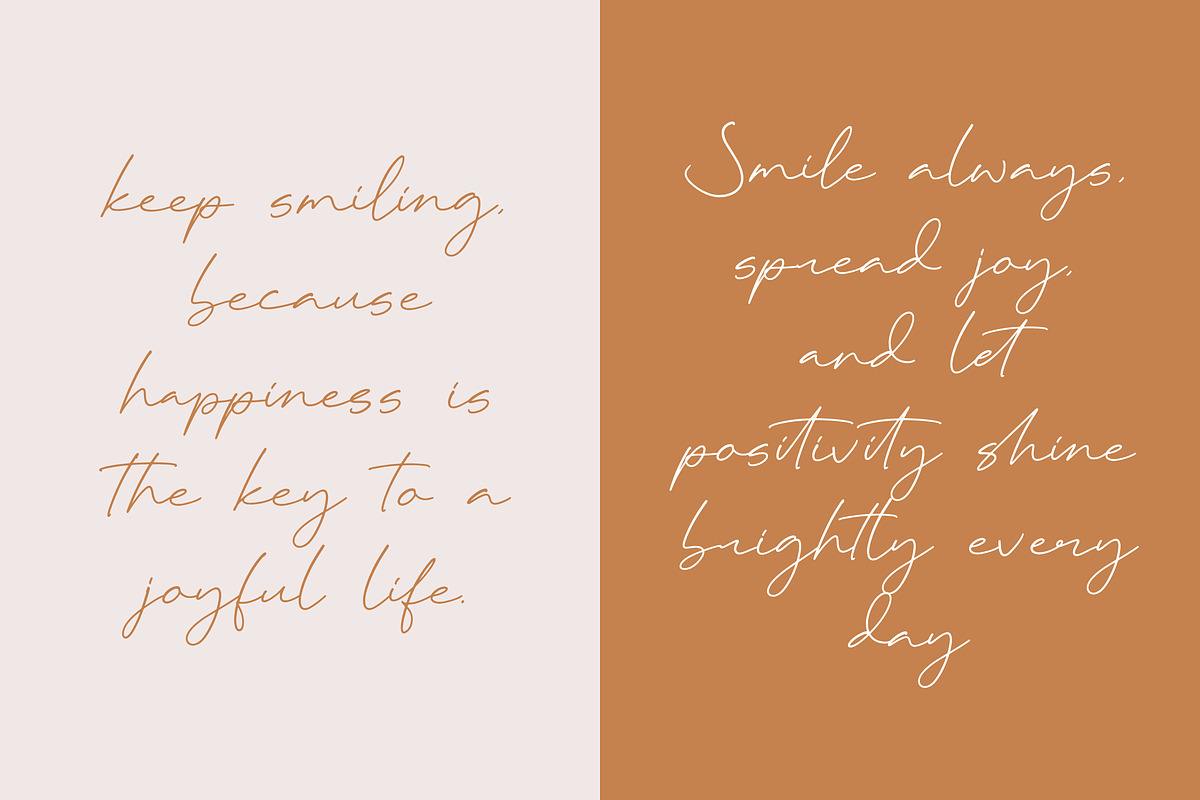 keep smiling,
because
happiness is
the key to a
joyful life.
Smile always,
spread joy,
and let
positivity shine
brightly every
day